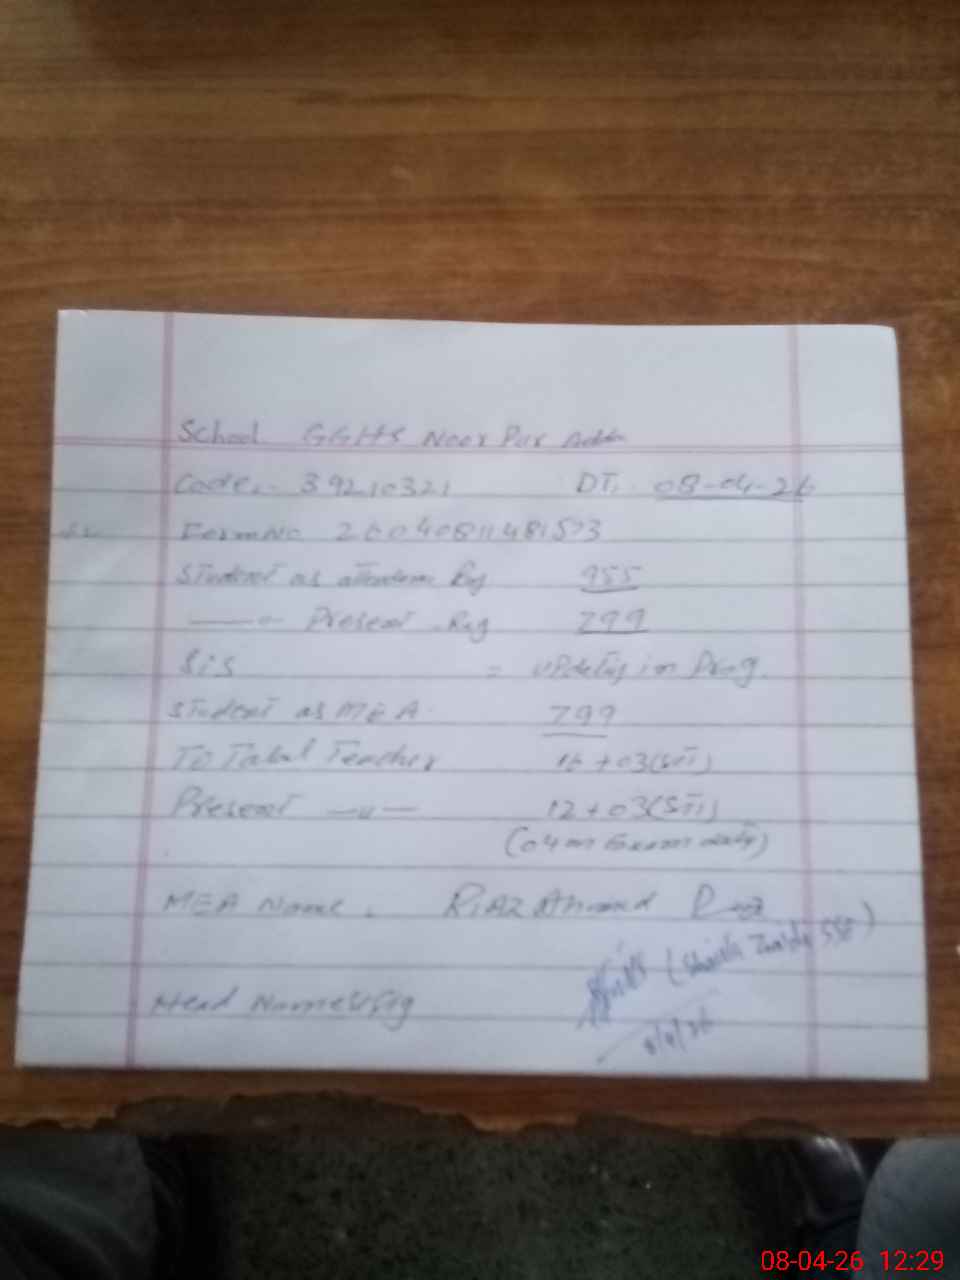 School GGHS Noor Pur Adda
Code:- 39210321 DT:- 08-04-26
Form No 26040811481573
Student as attendance Reg 955
——"— Present Reg 799
SiS = updating in Prog.
Student as MEA 799
To Total Teacher 16 + 03(STI)
Present —"— 12 + 03(STI)
(04 on Exam duty)
MEA Name. RiAZ Ahmad
(Shaista SSE)
Head Name & Sig
8/4/26
08-04-26 12:29